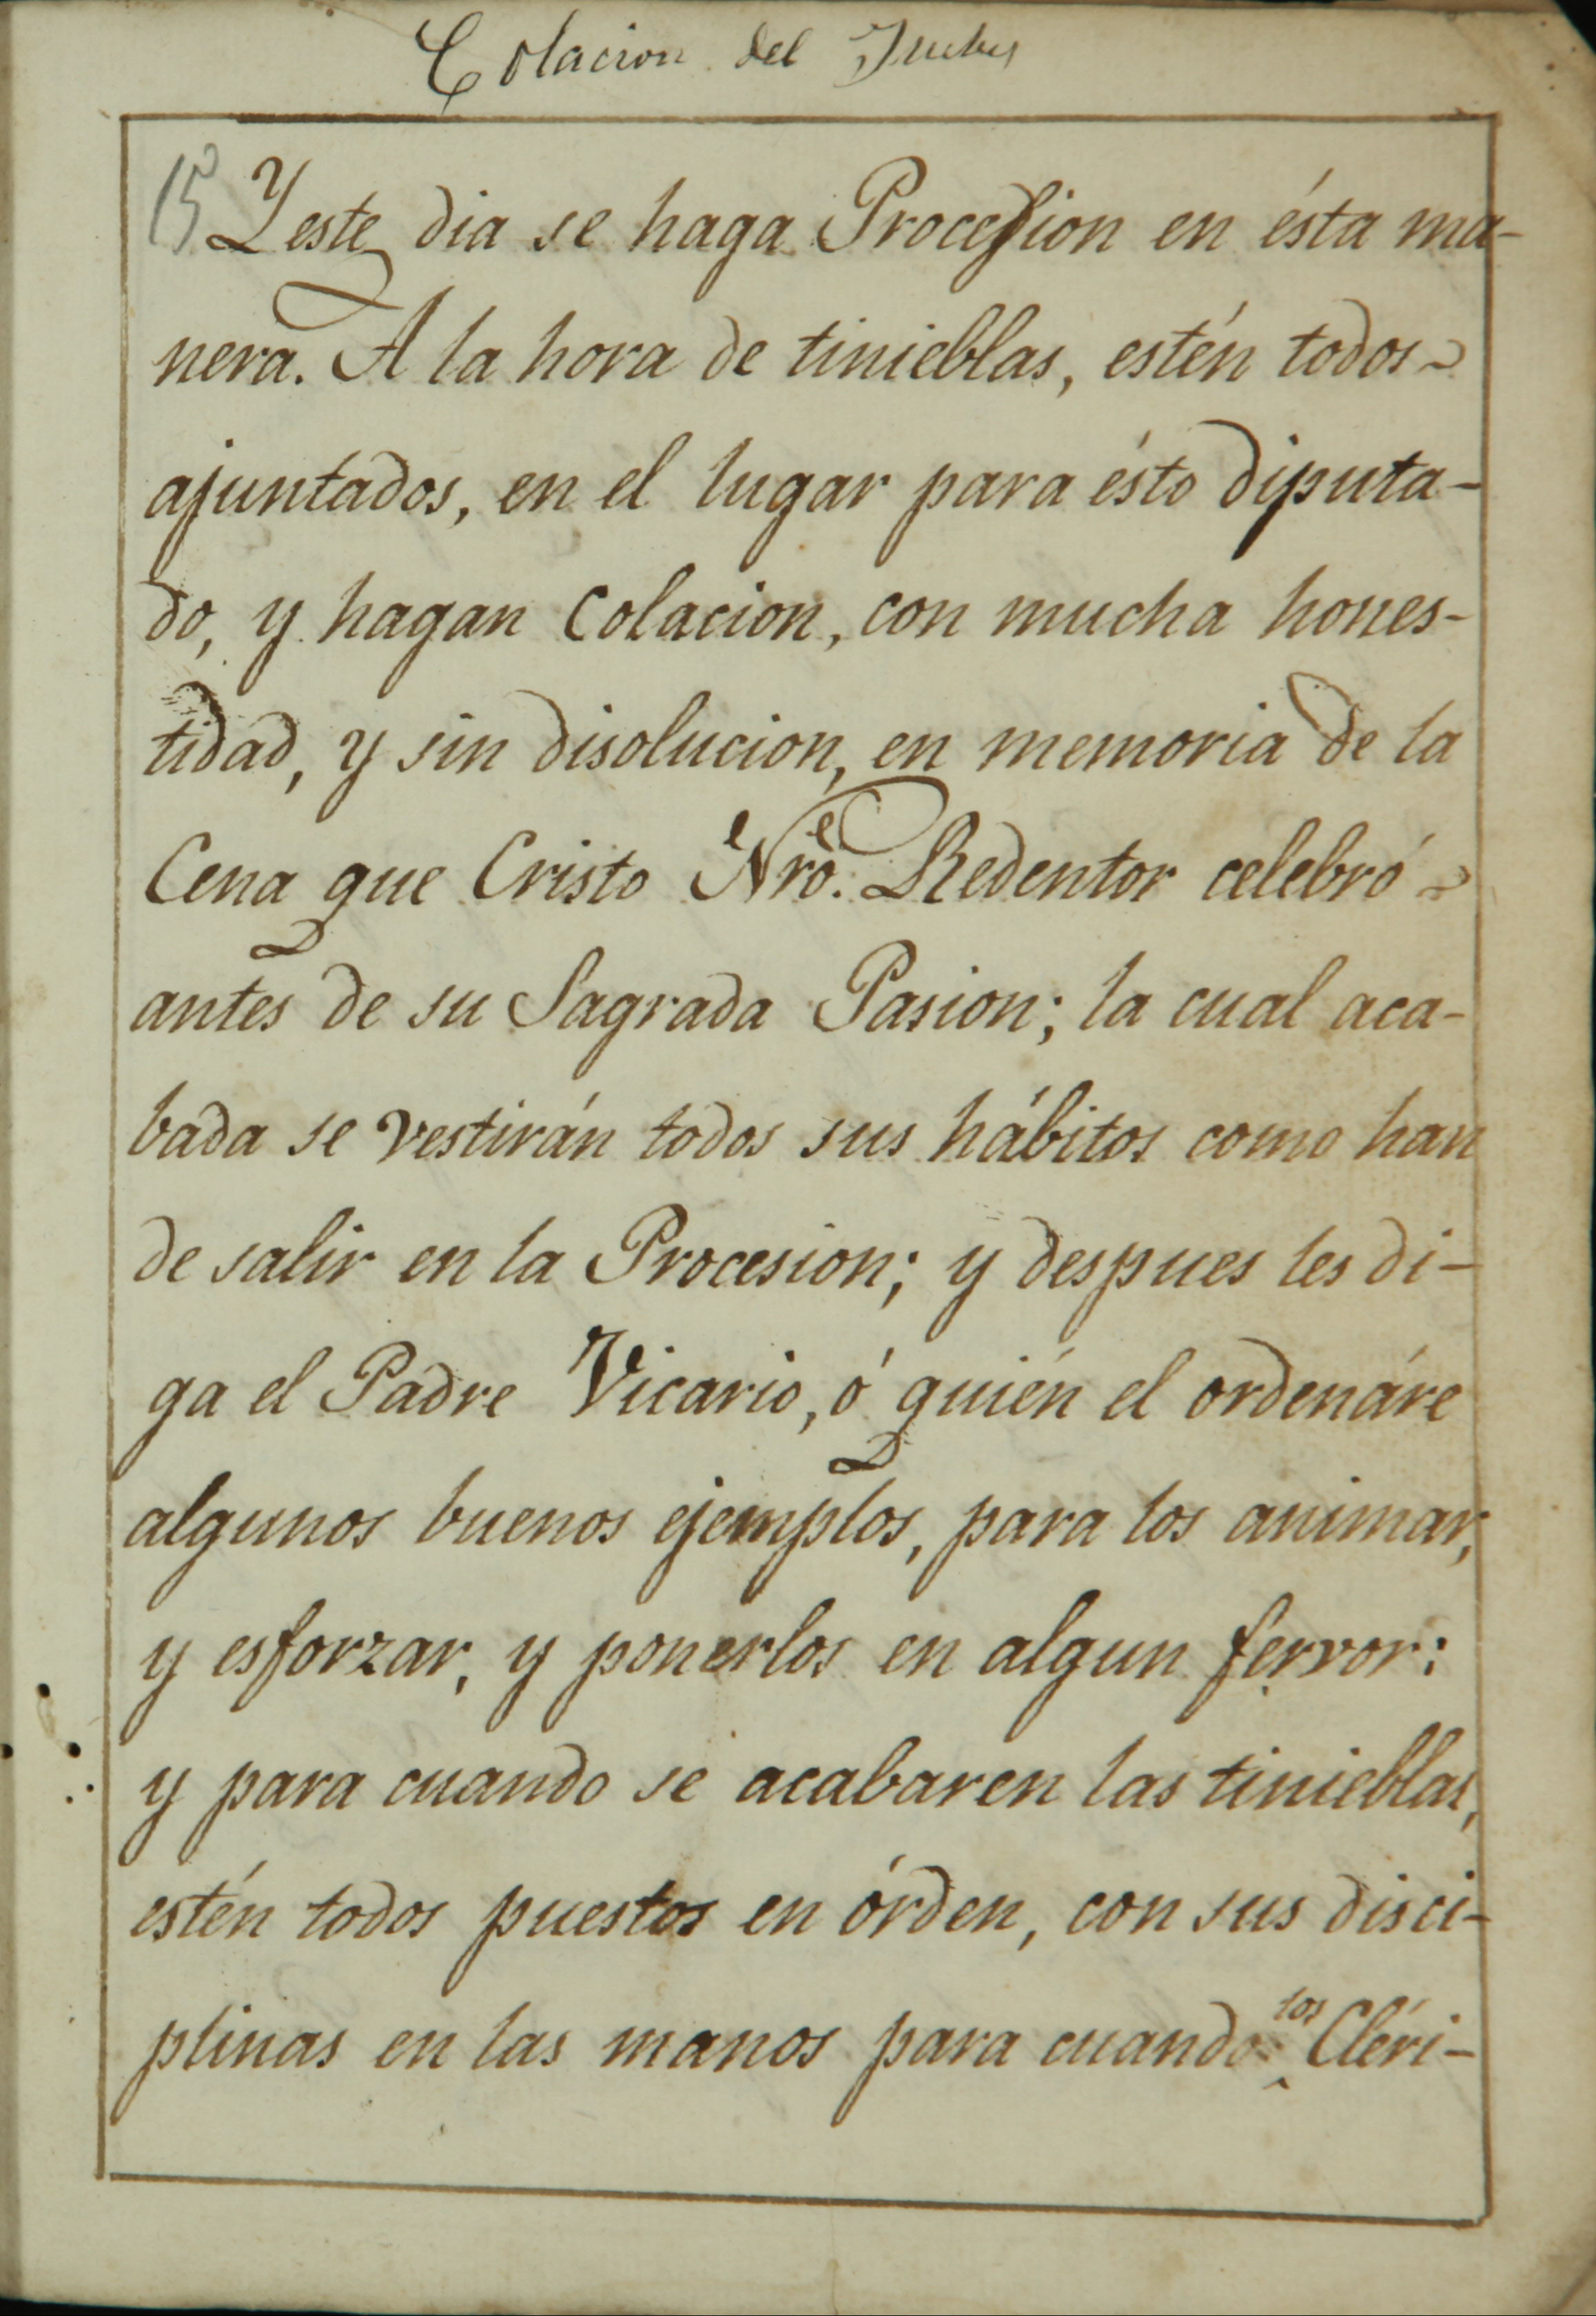 Colacion del Jueves
15 Y este dia se haga Procession en ésta ma-
nera. A la hora de tinieblas, estén todos
ajuntados, en el lugar para ésto diputa-
do, y hagan Colacion, con mucha hones-
tidad, y sin disolucion, en memoria de la
Cena que Cristo Nrō. Redentor celebró
antes de su Sagrada Pasion; la cual aca-
bada se vestirán todos sus hábitos como han
de salir en la Procesion; y despues les di-
ga el Padre Vicario, ó quién el ordenáre
algunos buenos ejemplos, para los animar,
y esforzar, y ponerlos en algun fervor:
y para cuando se acabaren las tinieblas,
estén todos puestos en órden, con sus disci-
plinas en las manos para cuando los Cléri-